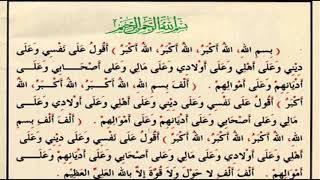 بسم الله الرحمن الرحيم
( بِسمِ اللهِ، اللهُ أَكْبَرُ، اللهُ أَكْبَرُ، اللهُ أَكْبَرُ ) أَقُولُ عَلَى نَفْسِي وَعَلَى
دِيْنِي وَعَلَى أَهْلِي وَعَلَى أَوْلَادِي وَعَلَى مَالِي وَعَلَى أَصْحَابِي وَعَلَى
أَدْيَانِهِمْ وَعَلَى أَمْوَالِهِمْ . أَلْفَ بِسمِ اللهِ، اللهُ أَكْبَرُ، اللهُ أَكْبَرُ،
اللهُ أَكْبَرُ . ( بِسمِ اللهِ، اللهُ أَكْبَرُ، اللهُ أَكْبَرُ، اللهُ أَكْبَرُ ) أَقُولُ
عَلَى نَفْسِي وَعَلَى دِيْنِي وَعَلَى أَهْلِي وَعَلَى أَوْلَادِي وَعَلَى
مَالِي وَعَلَى أَصْحَابِي وَعَلَى أَدْيَانِهِمْ وَعَلَى أَمْوَالِهِمْ . أَلْفَ أَلْفِ
بِسمِ اللهِ، اللهُ أَكْبَرُ، اللهُ أَكْبَرُ، اللهُ أَكْبَرُ ) أَقُولُ عَلَى نَفْسِي وَعَلَى دِيْنِي وَعَلَى
أَهْلِي وَعَلَى أَوْلَادِي وَعَلَى مَالِي وَعَلَى أَصْحَابِي وَعَلَى أَدْيَانِهِمْ وَعَلَى
أَمْوَالِهِمْ . أَلْفَ أَلْفِ لَا حَوْلَ وَلَا قُوَّةَ إِلاَّ بِاللهِ الْعَلِيِّ الْعَظِيْمِ .